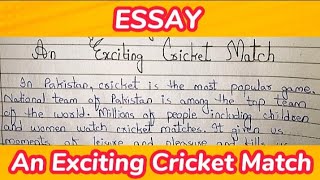 ESSAY
An Exciting Cricket Match
In Pakistan, cricket is the most popular game.
National team of Pakistan is among the top team
of the world. Millions of people including children
and women watch cricket matches. It gives us
moments of leisure and pleasure and
An Exciting Cricket Match